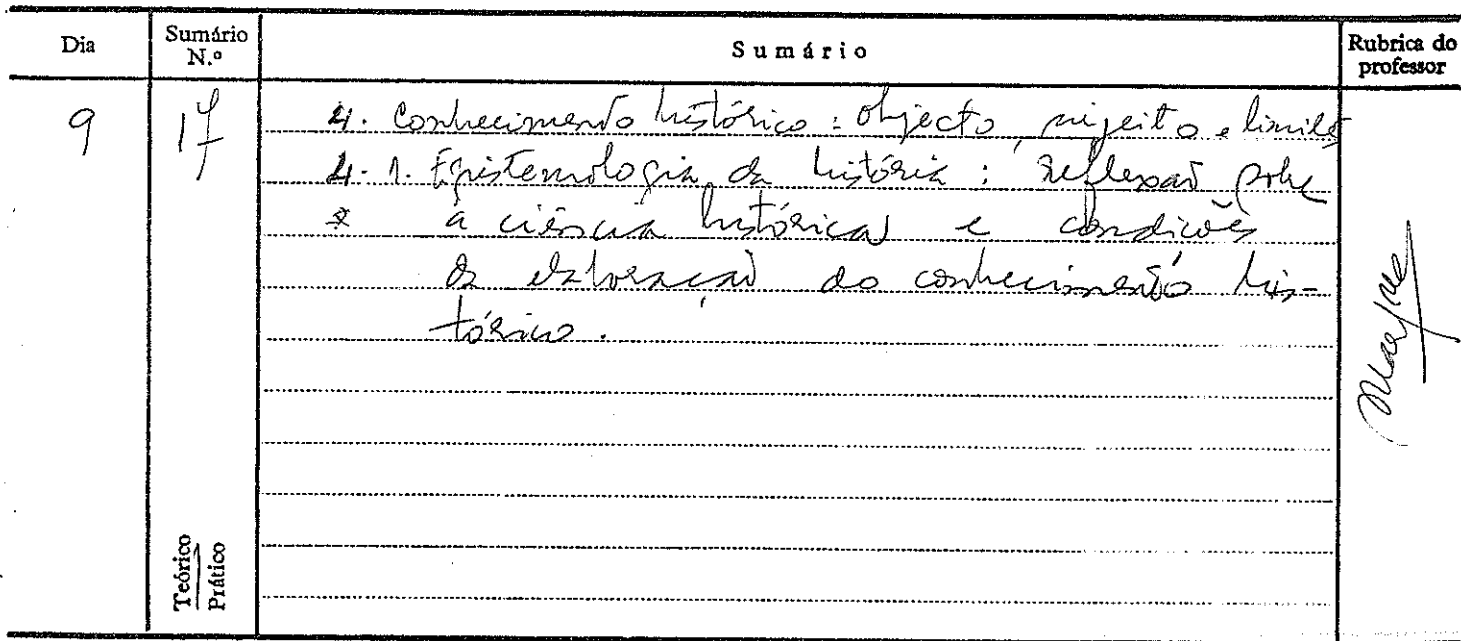 Dia Sumário N.º Sumário Rubrica do professor
9 17 4. Conhecimento histórico: objecto, sujeito e limites
4.1. Epistemologia da história: reflexão sobre
a ciência histórica e condições
da elaboração do conhecimento his-
tórico.
Teórico
Prático